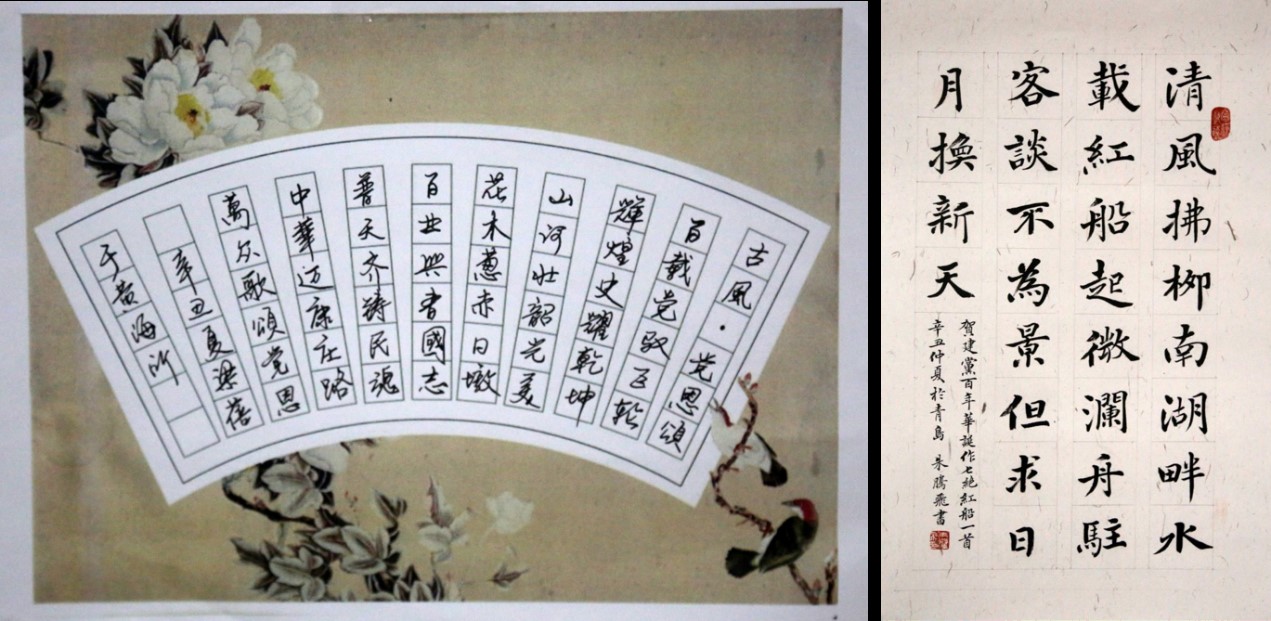 古風·党恩頌
百载党驭巨轮
輝煌史耀乾坤
山河壮韶光美
花木蔥赤日暾
百业興書國志
普天齐鑄民魂
中華迈康庄路
萬众歌頌党恩
辛丑夏梁蓓
于黄海
清風拂柳南湖畔水
載紅船起微瀾舟駐
客談不為景但求日
月換新天
贺建黨百年華誕作七絕紅船一首
辛丑仲夏於青島 朱騰飛書